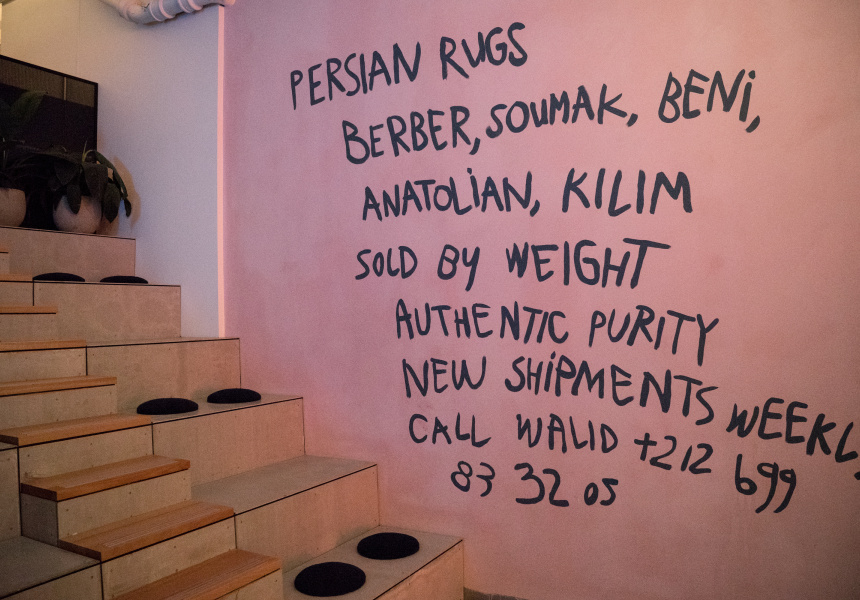 PERSIAN RUGS
BERBER, SOUMAK, BENi,
ANATOLiAN, KILIM
SOLD BY WEIGHT
AUTHENTIC PURiTY
NEW SHiPMENTS WEEKL
CALL WALID +212 699
83 32 05